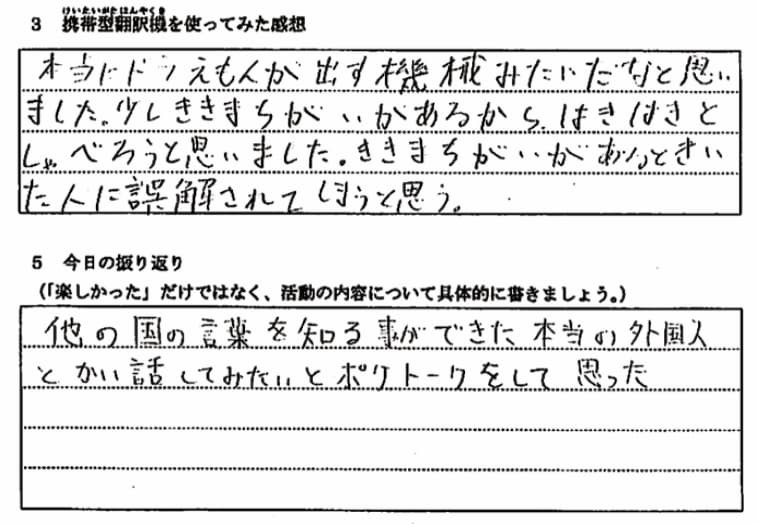 けいたいがたほんやくき
3 携帯型翻訳機を使ってみた感想
本当にドラえもんが出す機械みたいだなと思い
ました。少しききまちがいがあるから、はきはきと
しゃべろうと思いました。ききまちがいがあるときい
た人に誤解されてしまうと思う。
5 今日の振り返り
(「楽しかった」だけではなく、活動の内容について具体的に書きましょう。)
他の国の言葉を知る事ができた本当の外国人
とかい話してみたいとポケトークをして思った